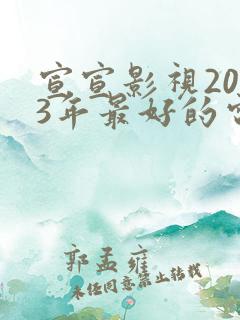 宣宣影視20
3年最好的
郭孟雍
未任同意禁止转载